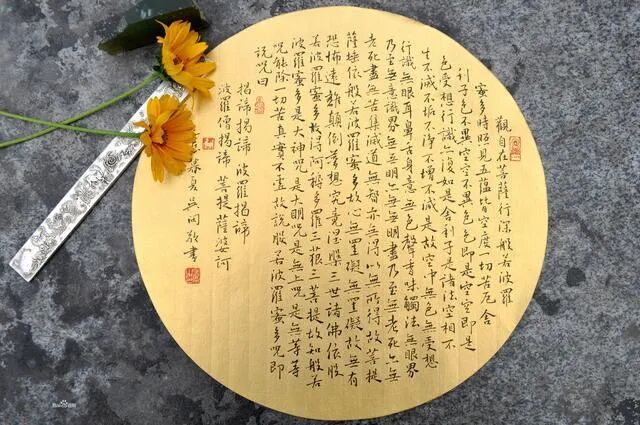 觀自在菩薩行深般若波羅
蜜多時照見五蘊皆空度一切苦厄舍
利子色不異空空不異色色即是空空即是
色受想行識亦復如是舍利子是諸法空相不
生不滅不垢不淨不增不減是故空中無色無受想
行識無眼耳鼻舌身意無色聲香味觸法無眼界
乃至無意識界無無明亦無無明盡乃至無老死亦無
老死盡無苦集滅道無智亦無得以無所得故菩提
薩埵依般若波羅蜜多故心無罣礙無罣礙故無有
恐怖遠離顛倒夢想究竟涅槃三世諸佛依般
若波羅蜜多故得阿耨多羅三藐三菩提故知般若
波羅蜜多是大神咒是大明咒是無上咒是無等等
咒能除一切苦真實不虛故說般若波羅蜜多咒即
說咒曰
揭諦揭諦 波羅揭諦
波羅僧揭諦 菩提薩婆訶
春 吳 敬書
和
Baidu百科